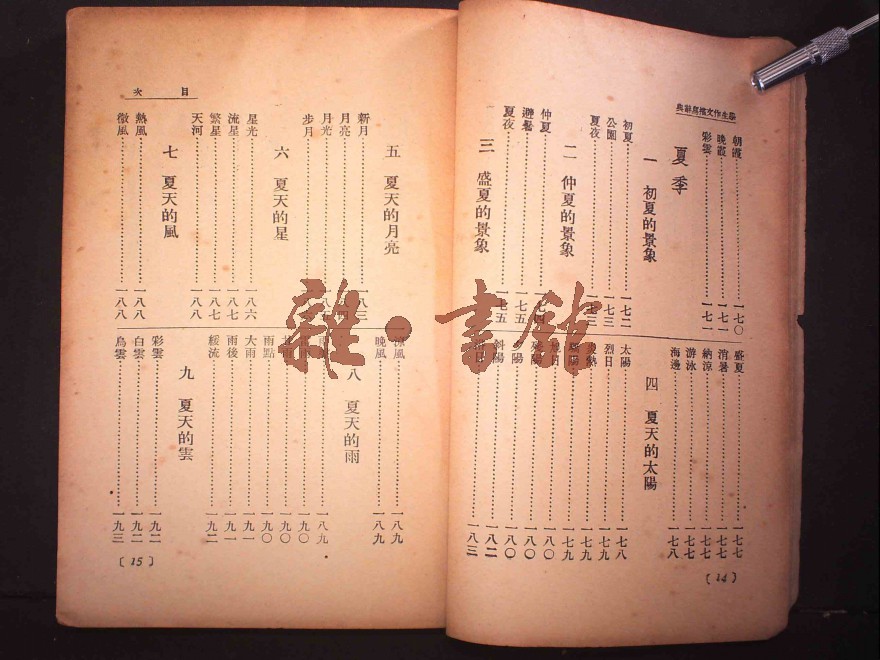 學生作文描寫辭典
朝霞 一七〇
晚霞 一七一
彩雲 一七一
夏季
一 初夏的景象
初夏 一七二
公園 一七三
夏夜 一七三
二 仲夏的景象
仲夏 一七四
避暑 一七五
夏夜 一七五
三 盛夏的景象
盛夏 一七七
消暑 一七七
納涼 一七七
游泳 一七七
海邊 一七八
四 夏天的太陽
太陽 一七八
烈日 一七九
一七九
一七九
一八〇
一八〇
夕陽 一八〇
斜陽 一八二
一八三
(14)
目次
五 夏天的月亮
新月 一八三
月亮
月光
步月
六 夏天的星
星光 一八六
流星 一八七
繁星 一八七
天河 一八八
七 夏天的風
熱風 一八八
微風 一八八
涼風 一八九
晚風 一八九
八 夏天的雨
一八九
一九〇
一九〇
雨點 一九〇
大雨 一九一
雨後 一九一
綏流 一九二
九 夏天的雲
彩雲 一九二
白雲 一九二
烏雲 一九三
(15)
雜·書館